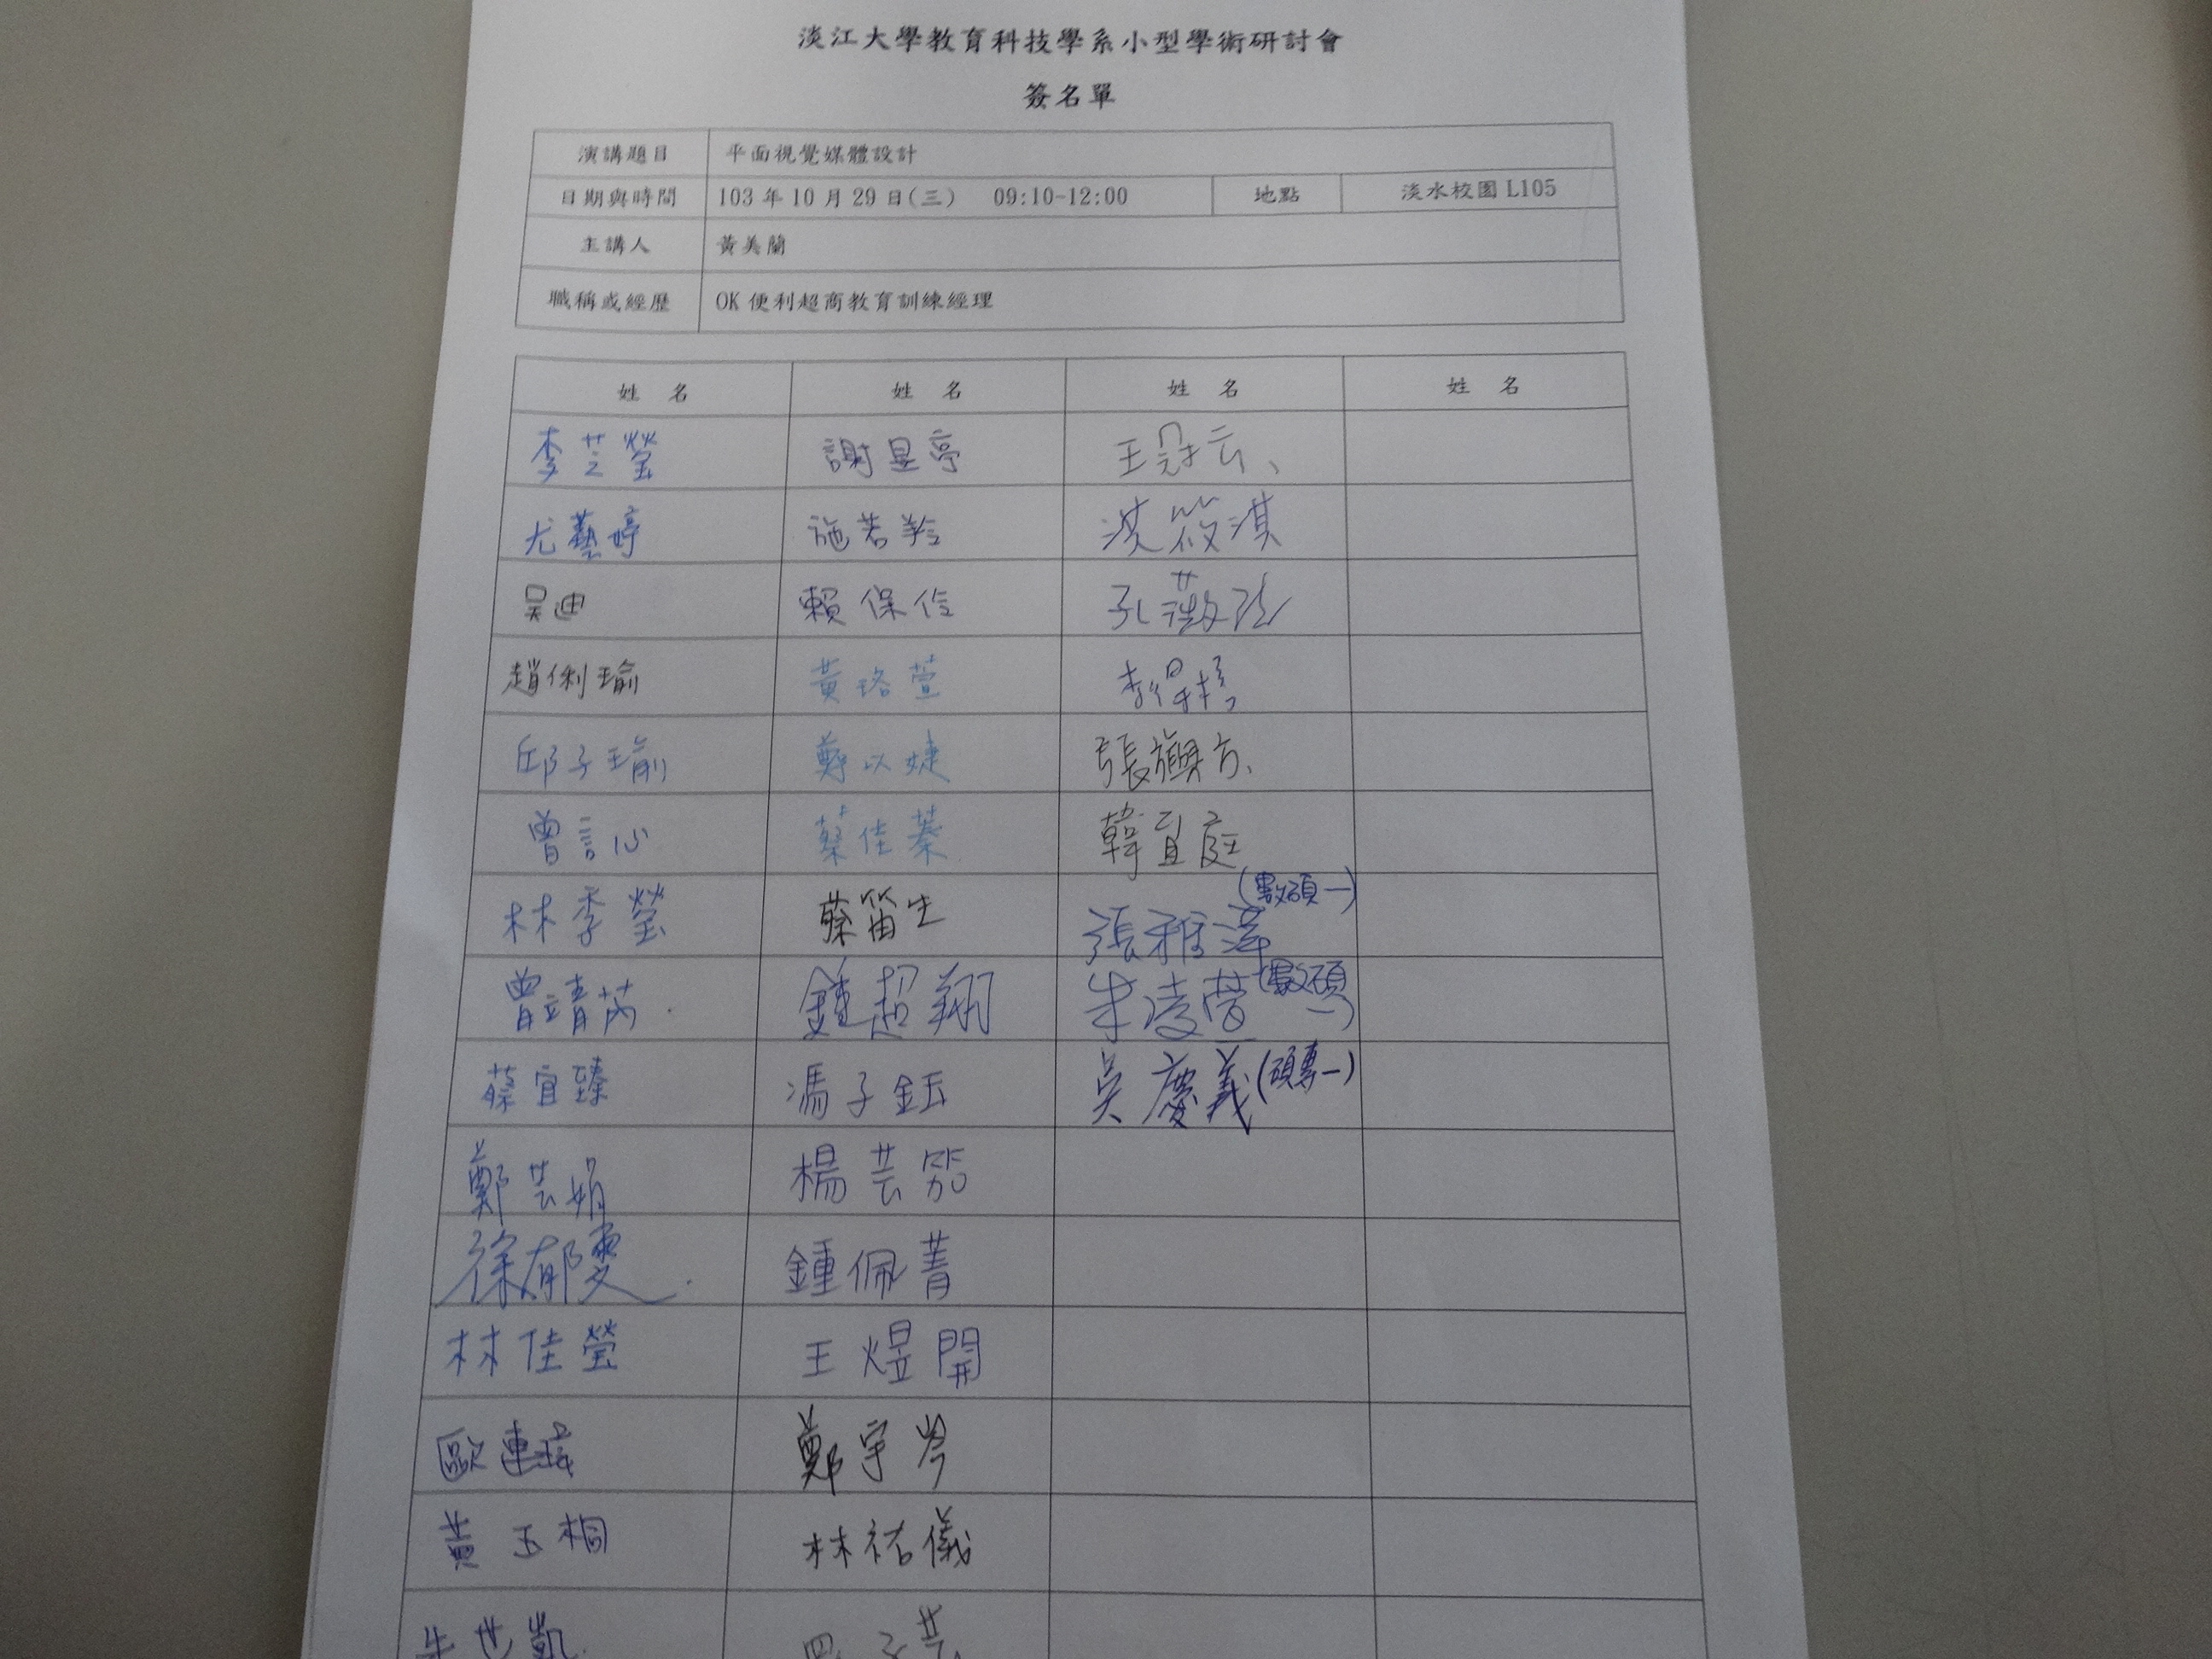 淡江大學教育科技學系小型學術研討會
簽名單
演講題目 平面視覺媒體設計
日期與時間 103 年 10 月 29 日(三) 09:10-12:00 地點 淡水校園 L105
主講人 黃美蘭
職稱或經歷 OK 便利超商教育訓練經理
姓 名 姓 名 姓 名 姓 名
李芝瑩 謝昱亭 王冠云、
尤藝婷 施若羚 洪筱淇
吳迪 賴保伶 孔薇
趙俐瑜 黃珞萱 李
邱子瑜 鄭以婕 張旗方、
曾言心 蔡佳蓁 韓宜庭
林季瑩 蔡笛生 張雅 (數碩一)
曾靖芮 鍾超翔 朱凌萱 (數碩一)
蔡宜臻 馮子鈺 吳慶義 (碩專一)
鄭芸娟 楊芸笳
徐郁雯 鍾佩菁
林佳瑩 王煜開
歐 鄭宇岑
黃玉桐 林祐儀
朱世凱